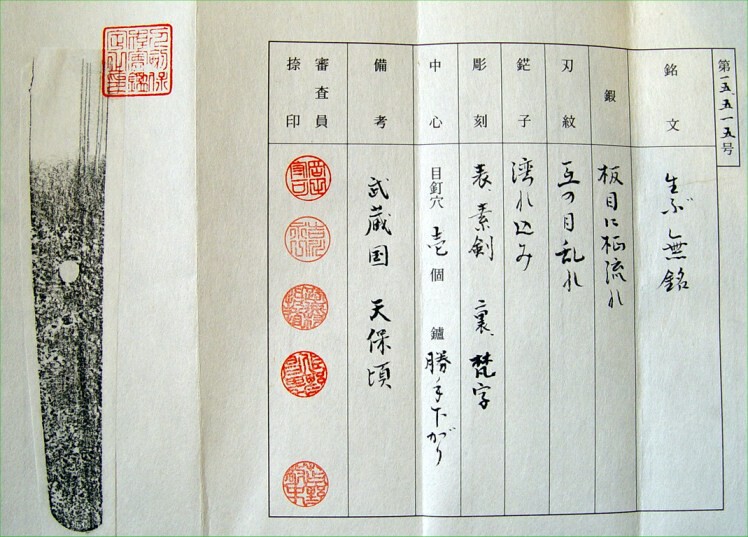 第一五五一五号
銘文 生ぶ無銘
鍛 板目に柾流れ
刃紋 互の目乱れ
鋩子 湾れ込み
彫刻 表、素剣 裏、梵字
中心 目釘穴 壱個 鑢 勝手下がり
備考 武蔵国 天保頃
審査員捺印